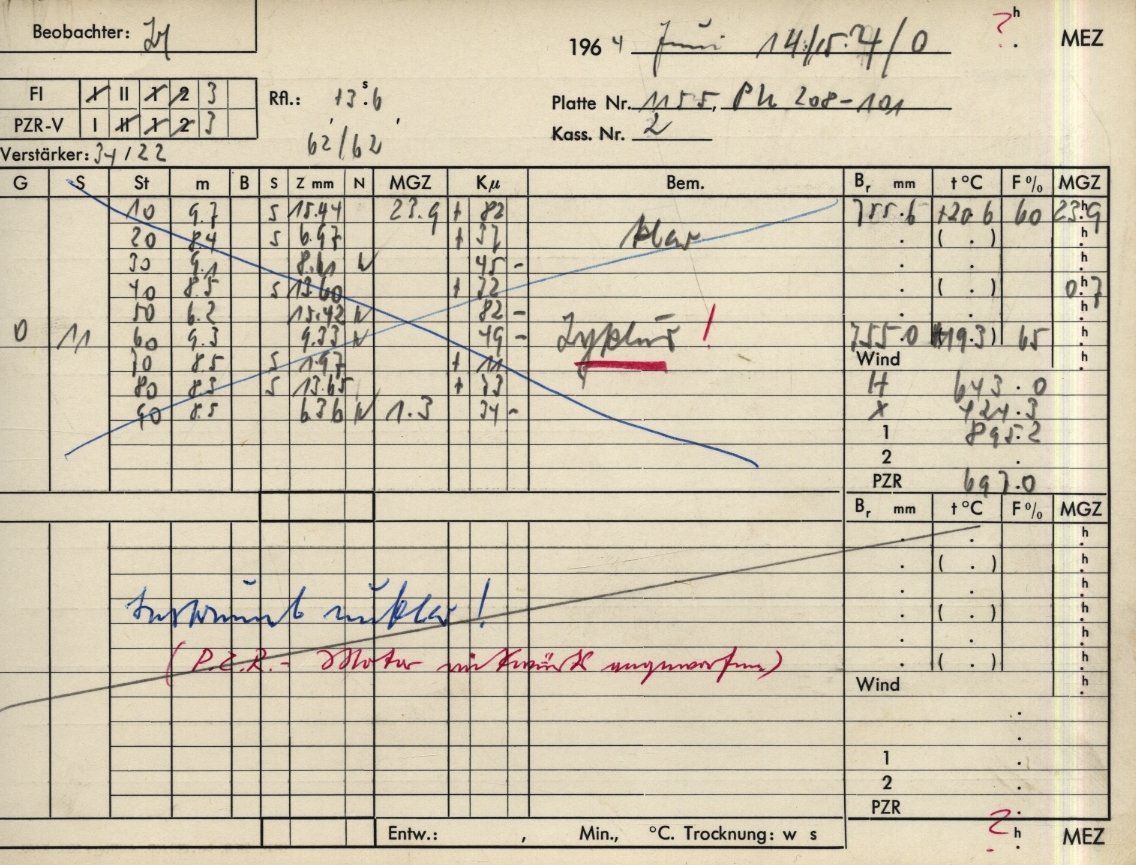 Beobachter:
1964 Juni 14./15. 7/0 ?h MEZ
FI I II 1 2 3
Rfl.: 13s.6
Platte Nr. 1155, Ph 208-101
PZR-V I II 1 2 3
62/62
Kass. Nr. 2
Verstärker: 34/22
G S St m B S Z mm N MGZ Kμ Bem. Br mm t °C F % MGZ
10 9.7 S 15.44 23.9 + 82 755.6 +20.6 60 23h9
20 8.4 S 6.97 + 37 klar . ( . ) h
30 9.1 8.61 N 45 - . . h
40 8.5 S 13.60 + 72 . ( . ) 0h7
50 6.2 15.42 N 82 - . . h
0 11 60 9.3 9.33 N 49 - ! 755.0 (+19.3) 65 h
70 8.5 S 1.97 + 11 Wind h
80 8.3 S 13.65 + 73 H 643.0
90 8.5 6.36 N 1.3 34 - X 424.3
1 895.2
2 .
PZR 697.0
Br mm t °C F % MGZ
. . h
. ( . ) h
. . h
Instrument unklar! . ( . ) h
. . h
(P.Z.R.- Motor rückwärts angeworfen) . ( . ) h
Wind h
.
.
1 .
2 .
PZR .
Entw.: , Min., °C. Trocknung: w s ?h. MEZ